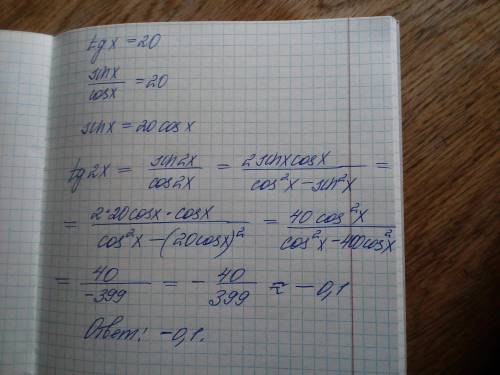 tg x = 20
sin x / cos x = 20
sin x = 20 cos x
tg 2x = sin 2x / cos 2x = 2 sin x cos x / cos²x − sin²x =
= 2·20 cos x · cos x / cos²x − (20 cos x)² = 40 cos²x / cos²x − 400 cos²x
= 40 / −399 = − 40 / 399 ≈ − 0,1
Ответ: −0,1.